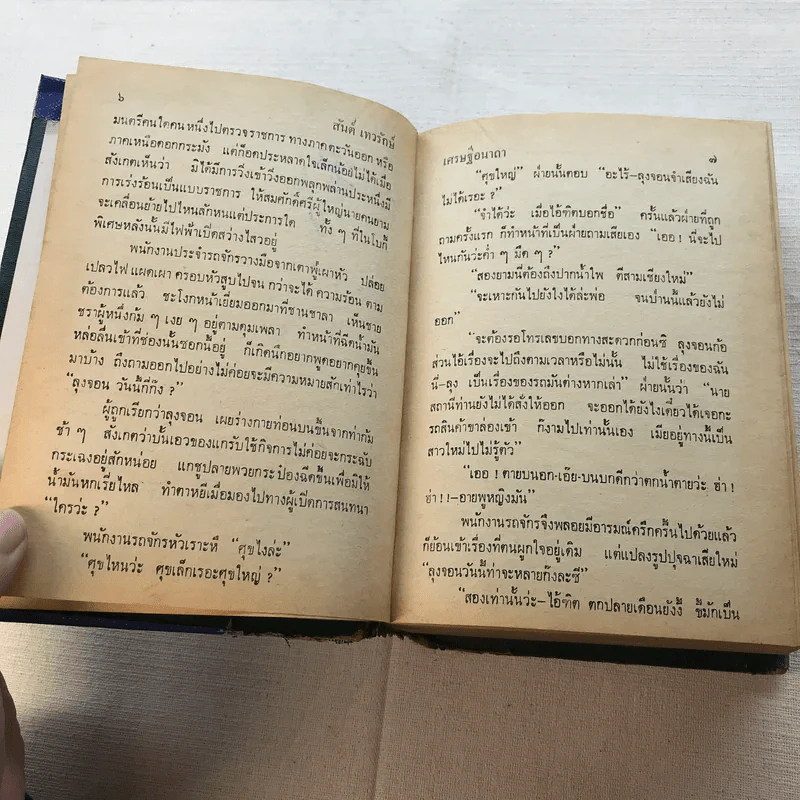 ๖
สันต์ เทวรักษ์
มนตรีคนใดคนหนึ่งไปตรวจราชการ ทางภาคตะวันออก หรือ
ภาคเหนือดอกกระมัง แต่ก็อดประหลาดใจเล็กน้อยไม่ได้เมื่อ
สังเกตเห็นว่า มิได้มีการวิ่งเข้าวิ่งออกพลุกพล่านประหนึ่งมี
การเร่งร้อนเป็นแบบราชการ ให้สมศักดิ์ศรีผู้ใหญ่นายคนยาม
จะเคลื่อนย้ายไปไหนสักหนแต่ประการใด ทั้ง ๆ ที่ในโบกี้
พิเศษหลังนั้นมีไฟฟ้าเปิดสว่างไสวอยู่
พนักงานประจำรถจักรวางมือจากเตาพู่เผาหัว ปล่อย
เปลวไฟ แผดเผา ครอบหัวสูบไปจน กว่าจะได้ ความร้อน ตาม
ต้องการแล้ว ชะโงกหน้าเยี่ยมออกมาที่ชานชาลา เห็นชาย
ชราผู้หนึ่งก้ม ๆ เงย ๆ อยู่ตามดุมเพลา ทำหน้าที่ฉีดน้ำมัน
หล่อลื่นเข้าที่ช่องนั้นซอกนี้อยู่ ก็เกิดนึกอยากพูดอยากคุยขึ้น
มาบ้าง ถึงถามออกไปอย่างไม่ค่อยจะมีความหมายสักเท่าไรว่า
“ลุงจอน วันนี้กี่กึง ?”
ผู้ถูกเรียกว่าลุงจอน เผยร่างกายท่อนบนขึ้นจากท่าก้ม
ช้า ๆ สังเกตว่าบั้นเอวของแกรับใช้กิจการไม่ค่อยจะกระฉับ
กระเฉงอยู่สักหน่อย แกชูปลายพวยกระป๋องฉีดขึ้นเพื่อมิให้
น้ำมันหกเรี่ยไหล ทำตาหยีเมื่อมองไปทางผู้เปิดการสนทนา
“ใครว่ะ ?”
พนักงานรถจักรหัวเราะหึ “ศุขไงล่ะ”
“ศุขไหนว่ะ ศุขเล็กเรอะศุขใหญ่ ?”
เศรษฐีอนาถา
๗
“ศุขใหญ่” ฝ่ายนั้นตอบ “อะไร้–ลุงจอนจำเสียงฉัน
ไม่ได้เรอะ ?”
“จำได้ว่ะ เมื่อไอ้ทิดบอกชื่อ” ครั้นแล้วฝ่ายที่ถูก
ถามครั้งแรก ก็ทำหน้าที่เป็นฝ่ายถามเสียเอง “เออ ! นี่จะไป
ไหนกันว่ะค่ำ ๆ มืด ๆ ?”
“สองยามนี่ต้องถึงปากน้ำโพ ตีสามเชียงใหม่”
“จะเหาะกันไปยังไงได้ล่ะพ่อ จนบ่านนี้แล้วยังไม่
ออก”
“จะต้องรอโทรเลขบอกทางสะดวกก่อนซิ ลุงจอนก้อ
ส่วนไอ้เรื่องจะไปถึงตามเวลาหรือไม่นั้น ไม่ใช้เรื่องของฉัน
นี่–ลุง เป็นเรื่องของรถมันต่างหากเล่า” ฝ่ายนั้นว่า “นาย
สถานีท่านยังไม่ได้สั่งให้ออก จะออกได้ยังไงเดี๋ยวได้เจอกะ
รถสินค้าขาล่องเข้า ก็งามไปเท่านั้นเอง เมียอยู่ทางนี้เป็น
สาวใหม่ไปไม่รู้ตัว”
“เออ ! ตายบนอก-เอ๊ย-บนบกดีกว่าตกน้ำตายว่ะ ฮ่า !
ฮ่า ! !-อายพูหญิงมัน”
พนักงานรถจักรจึงพลอยมีอารมณ์ครึกครื้นไปด้วยแล้ว
ก็ย้อนเข้าเรื่องที่ตนผูกใจอยู่เดิม แต่แปลงรูปปุจฉาเสียใหม่
“ลุงจอนวันนี้ท่าจะหลายกึงละซี”
“สองเท่านั้นว่ะ–ไอ้ทิด ตกปลายเดือนยังงี้ ขี้มักเป็น